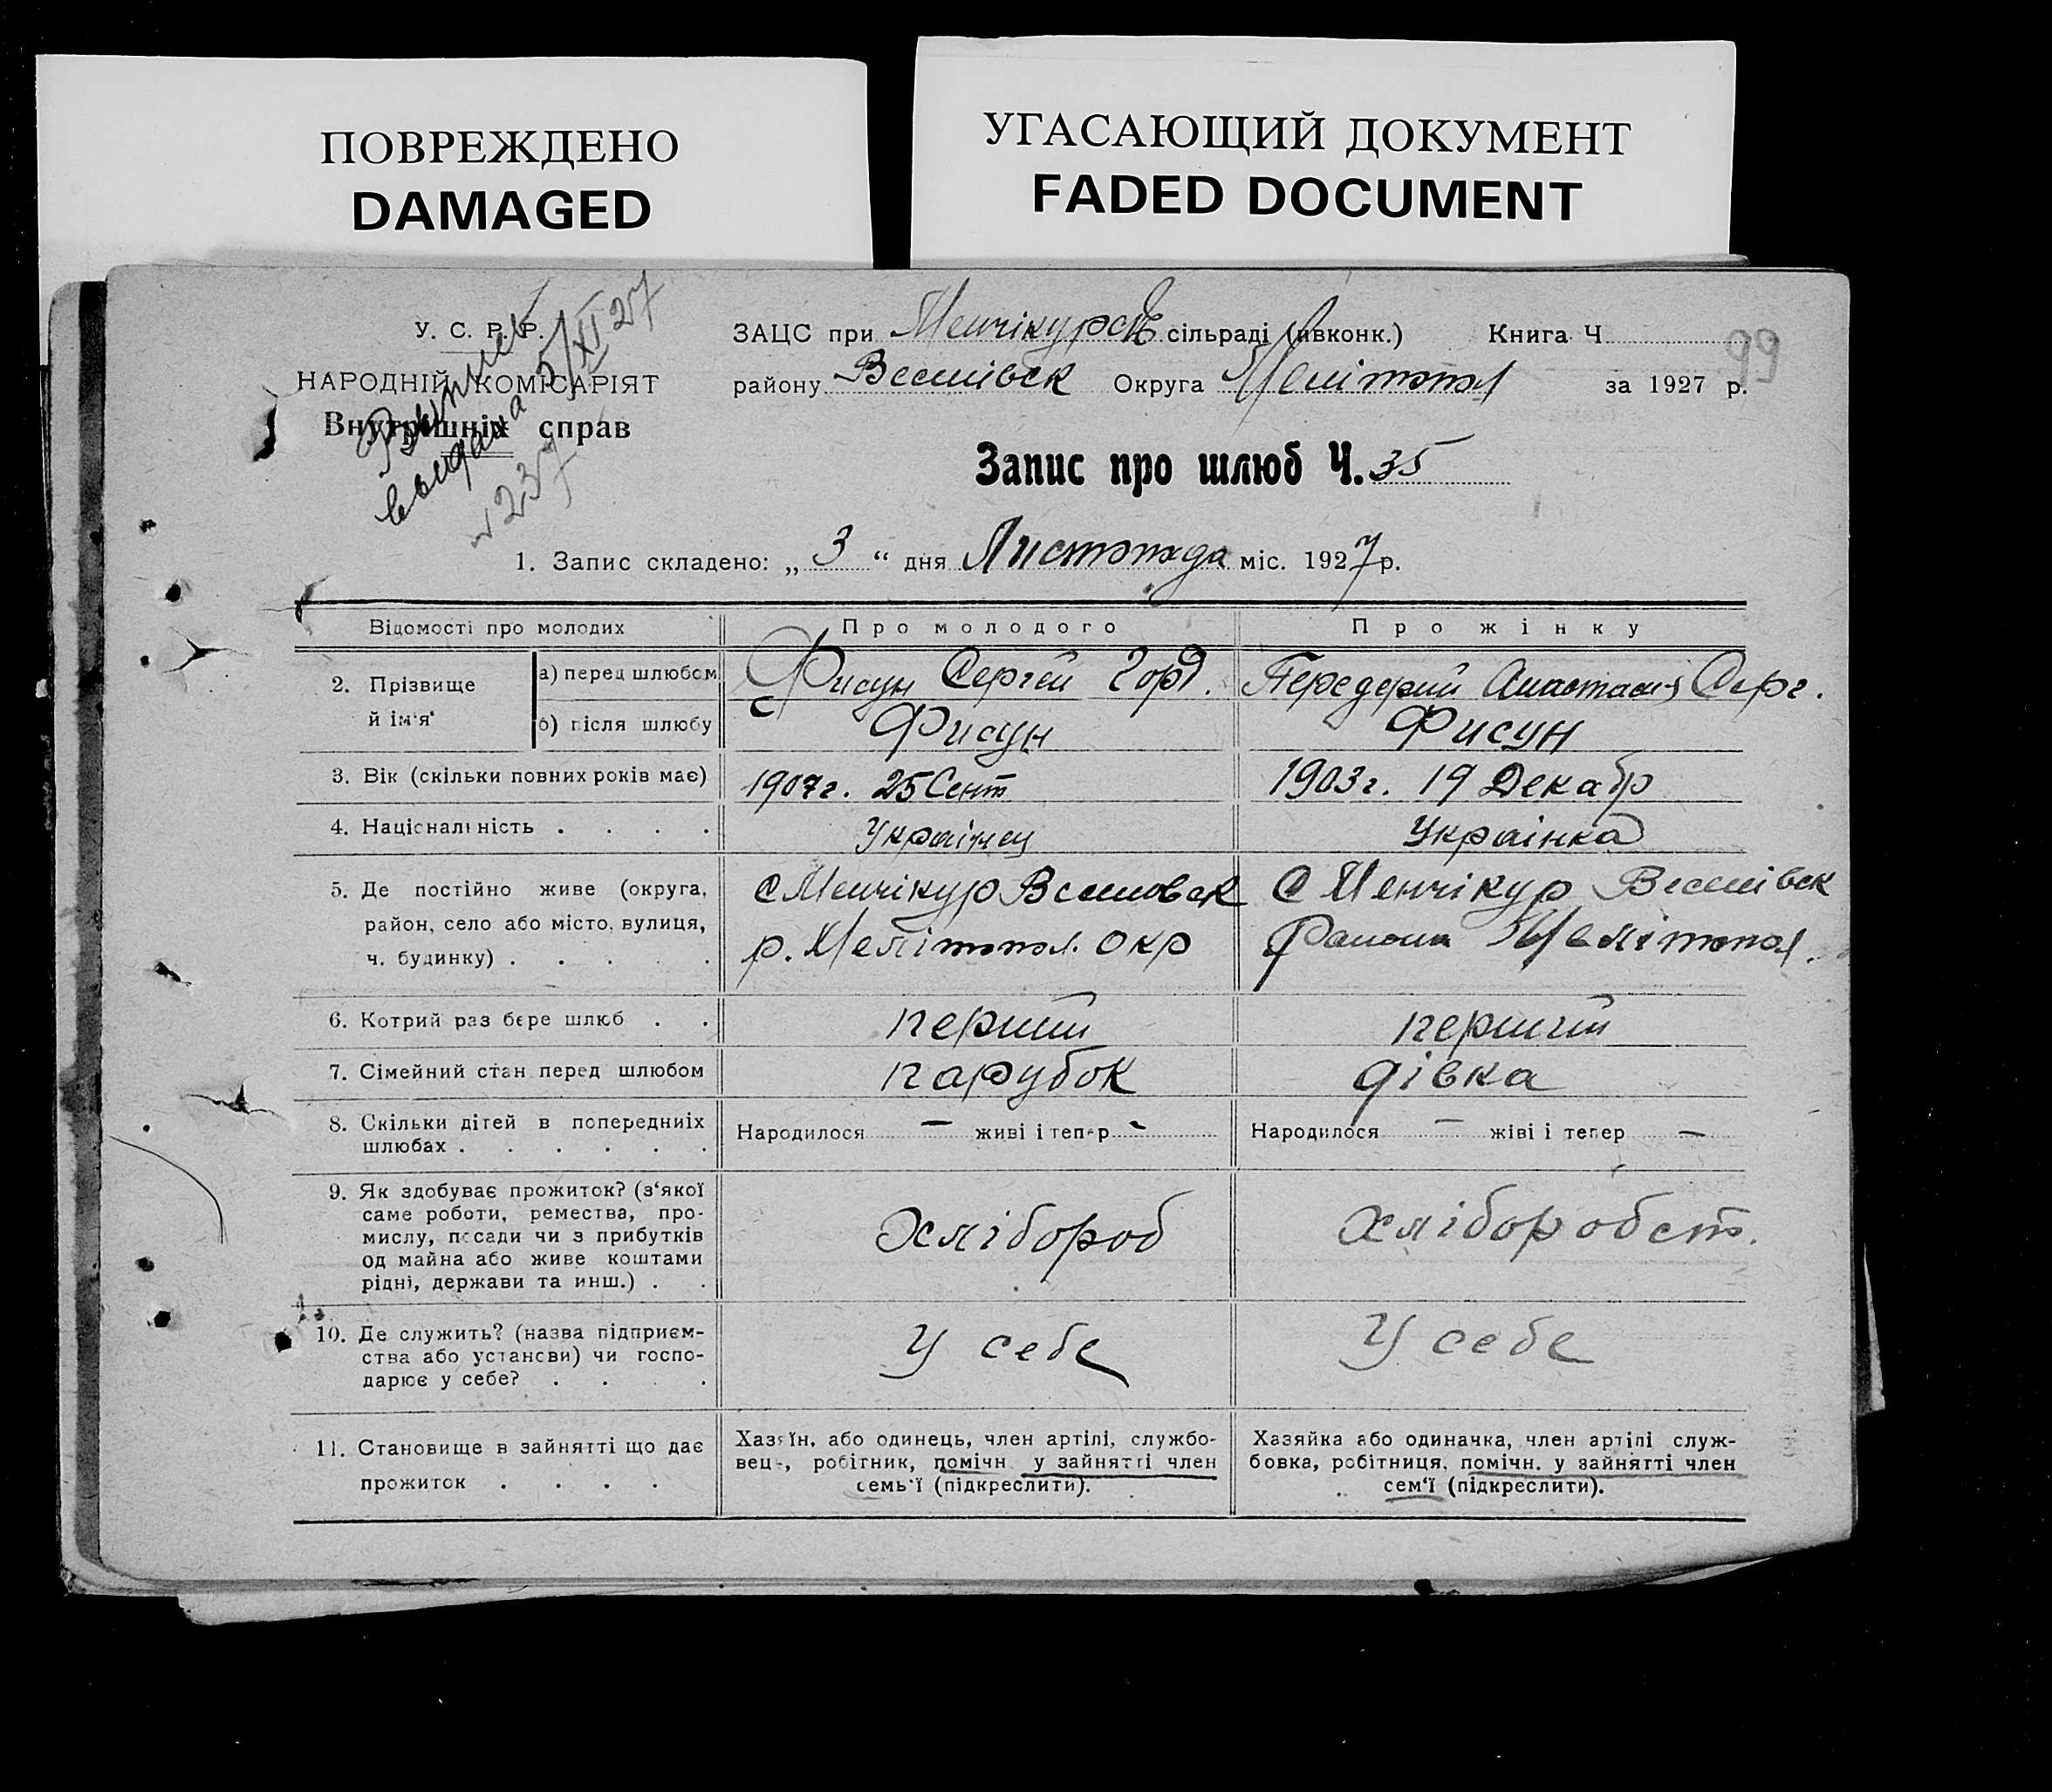 ПОВРЕЖДЕНО
DAMAGED
УГАСАЮЩИЙ ДОКУМЕНТ
FADED DOCUMENT
У. С. Р. Р.
НАРОДНІЙ КОМІСАРІЯТ
Внутрішніх справ
выдана 5/XII 27
№ 237
ЗАЦС при Менчікурск сільраді (ивконк.) Книга Ч
99
району Веселівск Округа Мелітопол за 1927 р.
Запис про шлюб Ч. 35
1. Запис складено: „ 3 “ дня Листопада міс. 1927 р.
Відомості про молодих Про молодого Про жінку
2. Прізвище й ім'я а) перед шлюбом Фисун Сергей Горд. Передерий Анастасия Серг.
б) після шлюбу Фисун Фисун
3. Вік (скільки повних років має) 1907г. 25 Сент 1903г. 19 Декабр
4. Національність . . . . Українец Українка
5. Де постійно живе (округа, район, село або місто, вулиця, ч. будинку) . . . . .
С Менчікур Веселовск
р. Мелітопол. окр
С Менчікур Веселівск
Района Мелітопол.
6. Котрий раз бере шлюб . . перший перший
7. Сімейний стан перед шлюбом парубок дівка
8. Скільки дітей в попередниіх шлюбах . . . . . .
Народилося — живі і тепер -
Народилося — жіві і тепер —
9. Як здобуває прожиток? (з'якої
саме роботи, ремества, про-
мислу, посади чи з прибутків
од майна або живе коштами
рідні, держави та инш.) . .
Хлібороб
Хліборобст.
10. Де служить? (назва підприєм-
ства або установи) чи госпо-
дарює у себе? . . . .
У себе
У себе
11. Становище в зайнятті що дає
прожиток . . . .
Хазяїн, або одинець, член артілі, службо-
вець, робітник, помічн у зайнятті член
семь'ї (підкреслити).
Хазяйка або одиначка, член артілі служ-
бовка, робітниця, помічн. у зайнятті член
сем'ї (підкреслити).